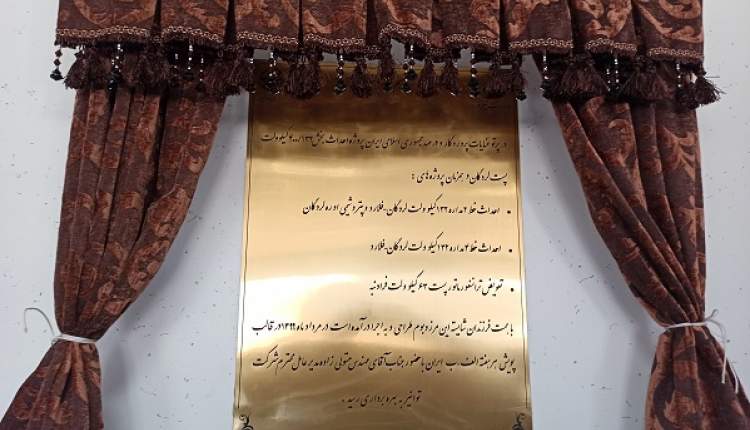 در پرتو عنایات پروردگار و در عهد جمهوری اسلامی ایران پروژه احداث بخش ۱۳۲/۴۰۰ کیلوولت
پست لردگان و همزمان پروژه های :
• احداث خط ۲مداره ۱۳۲کیلو ولت لردگان-فلارد و پتروشیمی اوره لردگان
• احداث خط ۲مداره ۱۳۲کیلو ولت لردگان-فلارد
• تعویض ترانسفورماتور پست ۶۳کیلو ولت فرادنبه
با همت فرزندان شایسته این مرز و بوم طراحی و به اجرا درآمده است در مرداد ماه ۱۳۹۹در قالب
پویش هر هفته الف_ب ایران با حضور جناب آقای مهندس متولی زاده مدیر عامل محترم شرکت
توانیر به بهره برداری رسید .